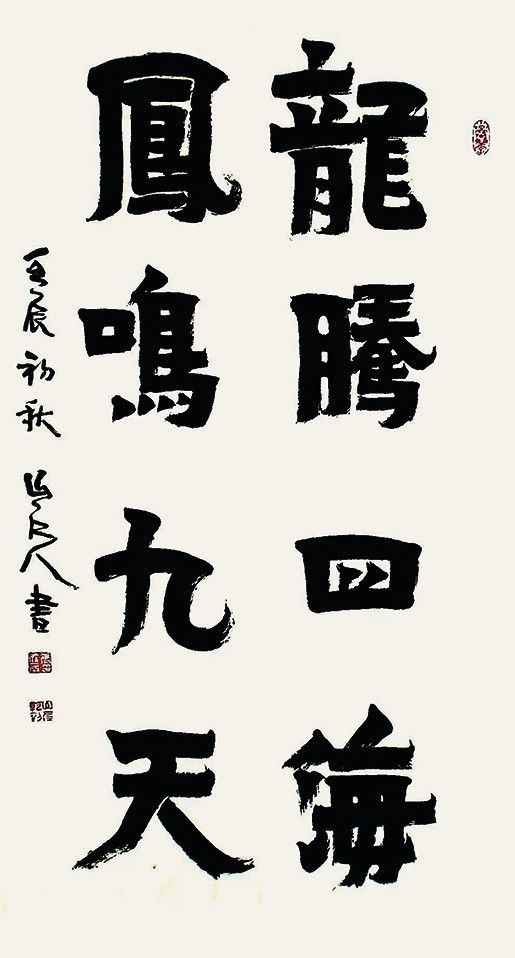 龍騰四海
鳳鳴九天
壬辰初秋 山人書